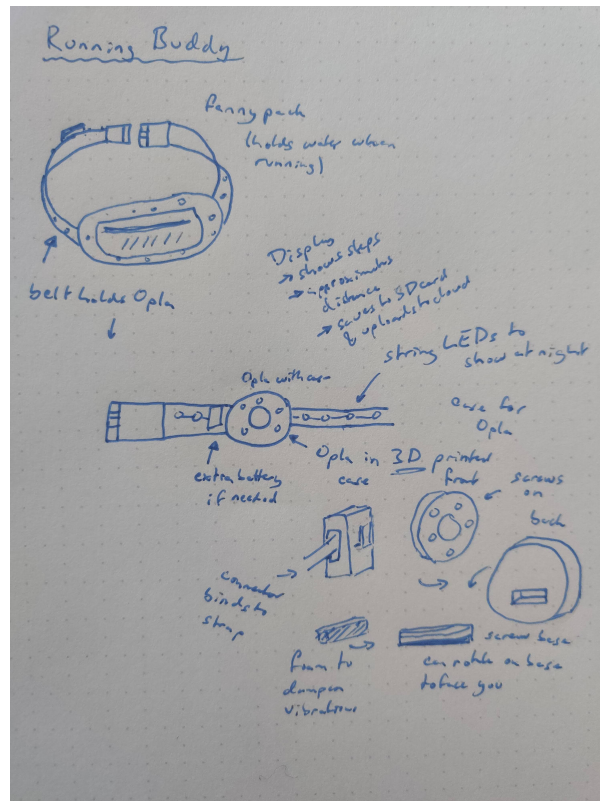 Running Buddy
fanny pack
(holds water when
running)
belt holds Opla
Display
→ shows steps
→ approximates
distance
→ saves to SD card
& uploads to cloud
string LEDs to
show at night
Opla with case
extra battery
if needed
Opla in 3D printed
case
case for
Opla
front
screws
on
back
connector
binds to
strap
foam to
dampen
vibrations
screw base
can rotate on base
to face you